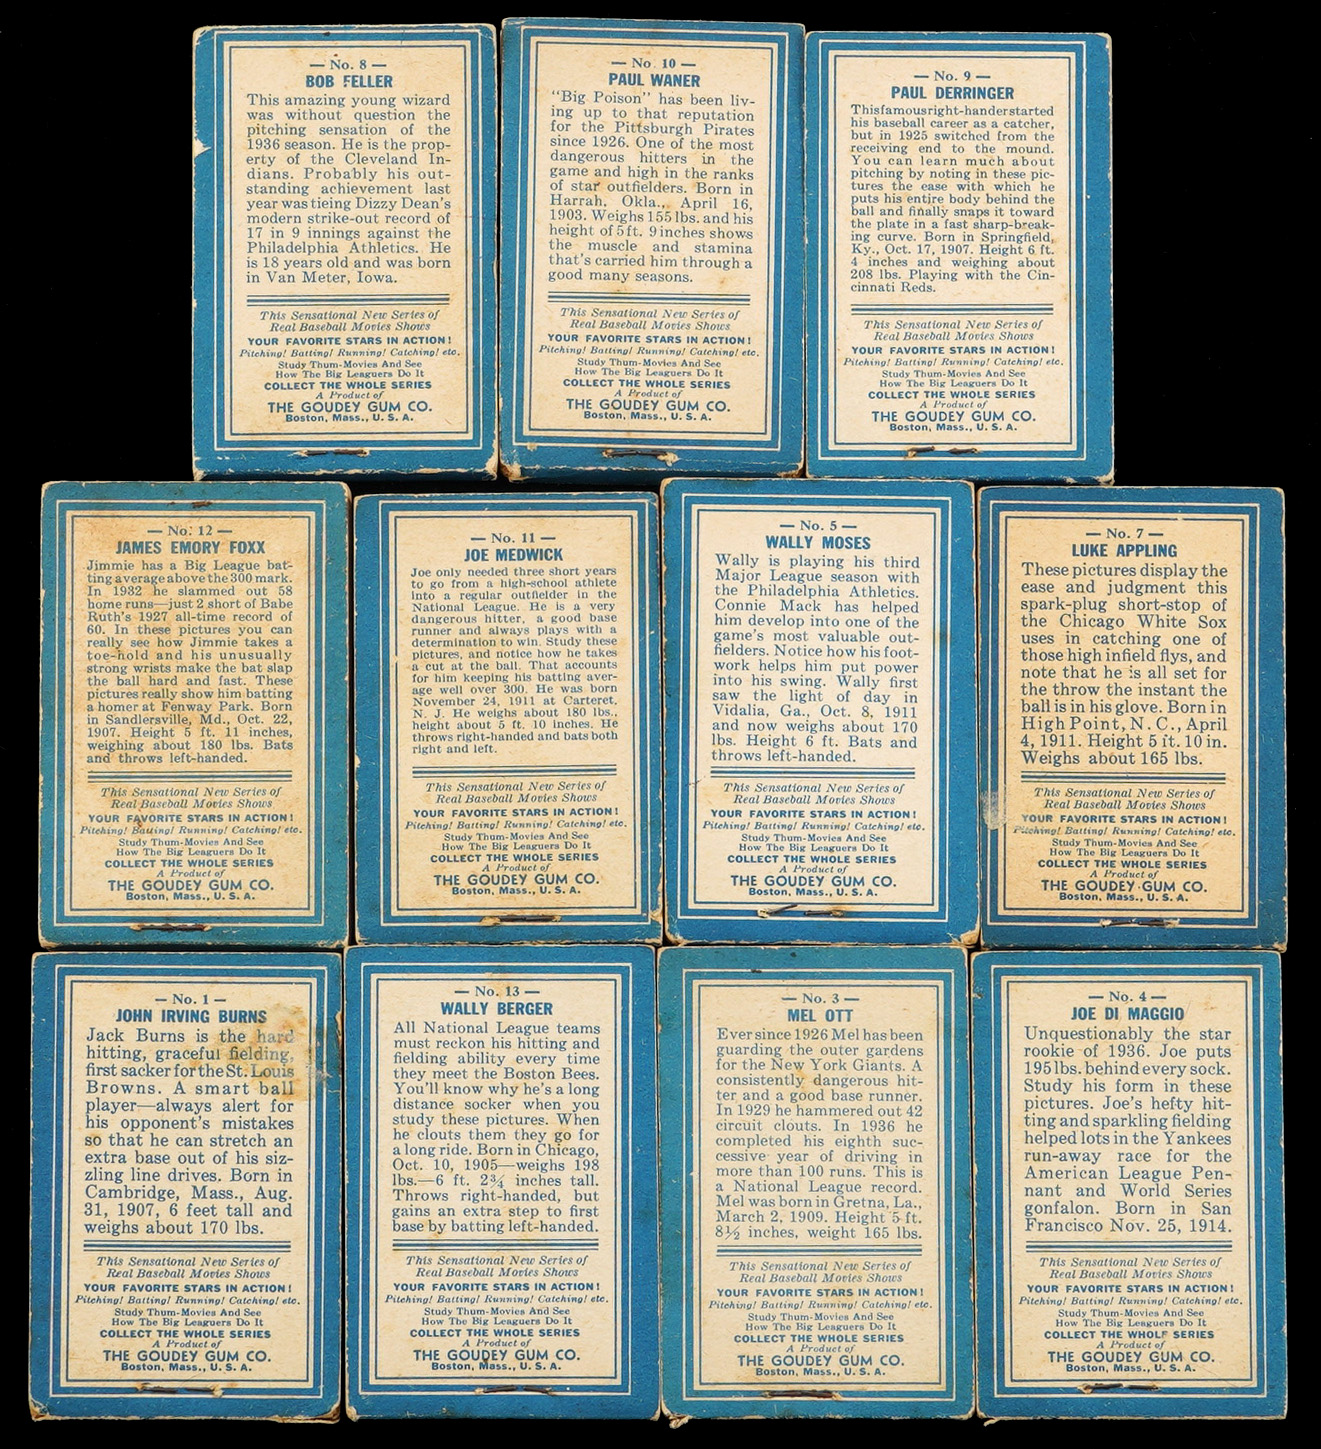 — No. 8 —
BOB FELLER
This amazing young wizard
was without question the
pitching sensation of the
1936 season. He is the prop-
erty of the Cleveland In-
dians. Probably his out-
standing achievement last
year was tieing Dizzy Dean's
modern strike-out record of
17 in 9 innings against the
Philadelphia Athletics. He
is 18 years old and was born
in Van Meter, Iowa.
This Sensational New Series of
Real Baseball Movies Shows
YOUR FAVORITE STARS IN ACTION!
Pitching! Batting! Running! Catching! etc.
Study Thum-Movies And See
How The Big Leaguers Do It
COLLECT THE WHOLE SERIES
A Product of
THE GOUDEY GUM CO.
Boston, Mass., U. S. A.
— No. 10 —
PAUL WANER
"Big Poison" has been liv-
ing up to that reputation
for the Pittsburgh Pirates
since 1926. One of the most
dangerous hitters in the
game and high in the ranks
of star outfielders. Born in
Harrah, Okla., April 16,
1903. Weighs 155 lbs. and his
height of 5 ft. 9 inches shows
the muscle and stamina
that's carried him through a
good many seasons.
This Sensational New Series of
Real Baseball Movies Shows
YOUR FAVORITE STARS IN ACTION!
Pitching! Batting! Running! Catching! etc.
Study Thum-Movies And See
How The Big Leaguers Do It
COLLECT THE WHOLE SERIES
A Product of
THE GOUDEY GUM CO.
Boston, Mass., U. S. A.
— No. 9 —
PAUL DERRINGER
This famous right-hander started
his baseball career as a catcher,
but in 1925 switched from the
receiving end to the mound.
You can learn much about
pitching by noting in these pic-
tures the ease with which he
puts his entire body behind the
ball and finally snaps it toward
the plate in a fast sharp-break-
ing curve. Born in Springfield,
Ky., Oct. 17, 1907. Height 6 ft.
4 inches and weighing about
208 lbs. Playing with the Cin-
cinnati Reds.
This Sensational New Series of
Real Baseball Movies Shows
YOUR FAVORITE STARS IN ACTION!
Pitching! Batting! Running! Catching! etc.
Study Thum-Movies And See
How The Big Leaguers Do It
COLLECT THE WHOLE SERIES
A Product of
THE GOUDEY GUM CO.
Boston, Mass., U. S. A.
— No. 12 —
JAMES EMORY FOXX
Jimmie has a Big League bat-
ting average above the 300 mark.
In 1932 he slammed out 58
home runs—just 2 short of Babe
Ruth's 1927 all-time record of
60. In these pictures you can
really see how Jimmie takes a
toe-hold and his unusually
strong wrists make the bat slap
the ball hard and fast. These
pictures really show him batting
a homer at Fenway Park. Born
in Sandlersville, Md., Oct. 22,
1907. Height 5 ft. 11 inches,
weighing about 180 lbs. Bats
and throws left-handed.
This Sensational New Series of
Real Baseball Movies Shows
YOUR FAVORITE STARS IN ACTION!
Pitching! Batting! Running! Catching! etc.
Study Thum-Movies And See
How The Big Leaguers Do It
COLLECT THE WHOLE SERIES
A Product of
THE GOUDEY GUM CO.
Boston, Mass., U. S. A.
— No. 11 —
JOE MEDWICK
Joe only needed three short years
to go from a high-school athlete
into a regular outfielder in the
National League. He is a very
dangerous hitter, a good base
runner and always plays with a
determination to win. Study these
pictures, and notice how he takes
a cut at the ball. That accounts
for him keeping his batting aver-
age well over 300. He was born
November 24, 1911 at Carteret,
N. J. He weighs about 180 lbs.,
height about 5 ft. 10 inches. He
throws right-handed and bats both
right and left.
This Sensational New Series of
Real Baseball Movies Shows
YOUR FAVORITE STARS IN ACTION!
Pitching! Batting! Running! Catching! etc.
Study Thum-Movies And See
How The Big Leaguers Do It
COLLECT THE WHOLE SERIES
A Product of
THE GOUDEY GUM CO.
Boston, Mass., U. S. A.
— No. 5 —
WALLY MOSES
Wally is playing his third
Major League season with
the Philadelphia Athletics.
Connie Mack has helped
him develop into one of the
game's most valuable out-
fielders. Notice how his foot-
work helps him put power
into his swing. Wally first
saw the light of day in
Vidalia, Ga., Oct. 8, 1911
and now weighs about 170
lbs. Height 6 ft. Bats and
throws left-handed.
This Sensational New Series of
Real Baseball Movies Shows
YOUR FAVORITE STARS IN ACTION!
Pitching! Batting! Running! Catching! etc.
Study Thum-Movies And See
How The Big Leaguers Do It
COLLECT THE WHOLE SERIES
A Product of
THE GOUDEY GUM CO.
Boston, Mass., U. S. A.
— No. 7 —
LUKE APPLING
These pictures display the
ease and judgment this
spark-plug short-stop of
the Chicago White Sox
uses in catching one of
those high infield flys, and
note that he is all set for
the throw the instant the
ball is in his glove. Born in
High Point, N. C., April
4, 1911. Height 5 ft. 10 in.
Weighs about 165 lbs.
This Sensational New Series of
Real Baseball Movies Shows
YOUR FAVORITE STARS IN ACTION!
Pitching! Batting! Running! Catching! etc.
Study Thum-Movies And See
How The Big Leaguers Do It
COLLECT THE WHOLE SERIES
A Product of
THE GOUDEY GUM CO.
Boston, Mass., U. S. A.
— No. 1 —
JOHN IRVING BURNS
Jack Burns is the hard
hitting, graceful fielding,
first sacker for the St. Louis
Browns. A smart ball
player—always alert for
his opponent's mistakes
so that he can stretch an
extra base out of his siz-
zling line drives. Born in
Cambridge, Mass., Aug.
31, 1907, 6 feet tall and
weighs about 170 lbs.
This Sensational New Series of
Real Baseball Movies Shows
YOUR FAVORITE STARS IN ACTION!
Pitching! Batting! Running! Catching! etc.
Study Thum-Movies And See
How The Big Leaguers Do It
COLLECT THE WHOLE SERIES
A Product of
THE GOUDEY GUM CO.
Boston, Mass., U. S. A.
— No. 13 —
WALLY BERGER
All National League teams
must reckon his hitting and
fielding ability every time
they meet the Boston Bees.
You'll know why he's a long
distance socker when you
study these pictures. When
he clouts them they go for
a long ride. Born in Chicago,
Oct. 10, 1905—weighs 198
lbs.—6 ft. 2¾ inches tall.
Throws right-handed, but
gains an extra step to first
base by batting left-handed.
This Sensational New Series of
Real Baseball Movies Shows
YOUR FAVORITE STARS IN ACTION!
Pitching! Batting! Running! Catching! etc.
Study Thum-Movies And See
How The Big Leaguers Do It
COLLECT THE WHOLE SERIES
A Product of
THE GOUDEY GUM CO.
Boston, Mass., U. S. A.
— No. 3 —
MEL OTT
Ever since 1926 Mel has been
guarding the outer gardens
for the New York Giants. A
consistently dangerous hit-
ter and a good base runner.
In 1929 he hammered out 42
circuit clouts. In 1936 he
completed his eighth suc-
cessive year of driving in
more than 100 runs. This is
a National League record.
Mel was born in Gretna, La.,
March 2, 1909. Height 5 ft.
8½ inches, weight 165 lbs.
This Sensational New Series of
Real Baseball Movies Shows
YOUR FAVORITE STARS IN ACTION!
Pitching! Batting! Running! Catching! etc.
Study Thum-Movies And See
How The Big Leaguers Do It
COLLECT THE WHOLE SERIES
A Product of
THE GOUDEY GUM CO.
Boston, Mass., U. S. A.
— No. 4 —
JOE DI MAGGIO
Unquestionably the star
rookie of 1936. Joe puts
195 lbs. behind every sock.
Study his form in these
pictures. Joe's hefty hit-
ting and sparkling fielding
helped lots in the Yankees
run-away race for the
American League Pen-
nant and World Series
gonfalon. Born in San
Francisco Nov. 25, 1914.
This Sensational New Series of
Real Baseball Movies Shows
YOUR FAVORITE STARS IN ACTION!
Pitching! Batting! Running! Catching! etc.
Study Thum-Movies And See
How The Big Leaguers Do It
COLLECT THE WHOLE SERIES
A Product of
THE GOUDEY GUM CO.
Boston, Mass., U. S. A.